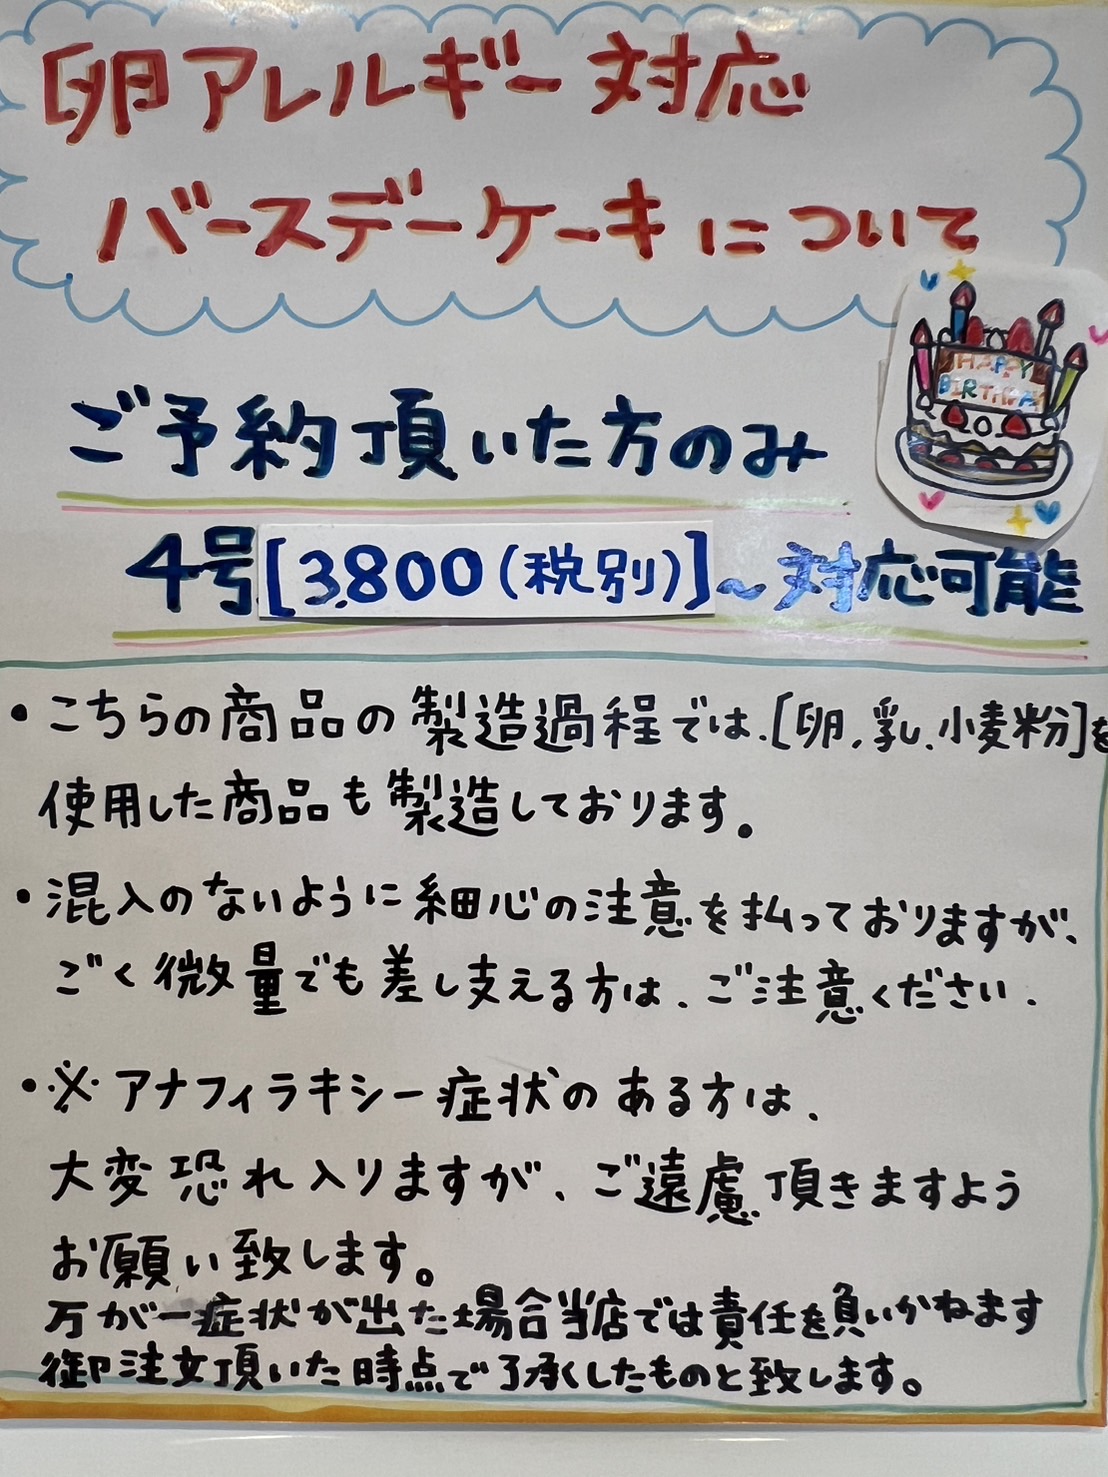 卵アレルギー対応
バースデーケーキについて
HAPPY
BIRTHDAY
ご予約頂いた方のみ
4号[3,800(税別)]~対応可能
・こちらの商品の製造過程では、[卵、乳、小麦粉]を
使用した商品も製造しております。
・混入のないように細心の注意を払っておりますが、
ごく微量でも差し支える方は、ご注意ください。
・※アナフィラキシー症状のある方は、
大変恐れ入りますが、ご遠慮頂きますよう
お願い致します。
万が一症状が出た場合当店では責任を負いかねます
御注文頂いた時点で了承くしたものと致します。